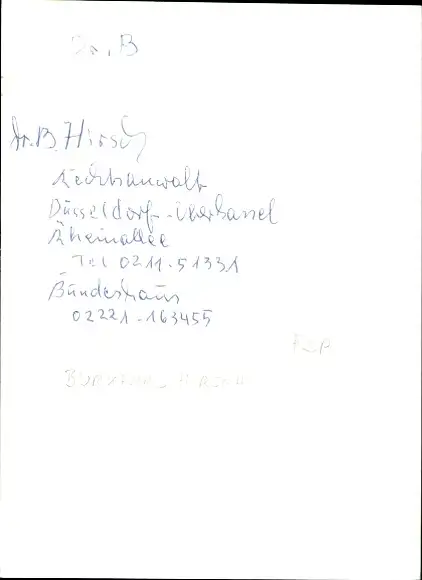 Dr. B
Dr. B. Hirsch
Rechtsanwalt
Düsseldorf-Oberkassel
Rheinallee
Tel 0211-51331
Bundeshaus
02221-163455
FDP
BURKHARD HIRSCH